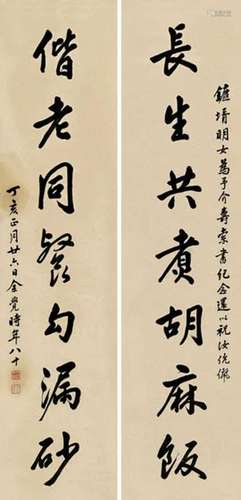 明女為予介壽索書紀念還以祝汝伉儷
長生共煮胡麻飯
偕老同餐勾漏砂
丁亥正月廿六日余覺時年八十